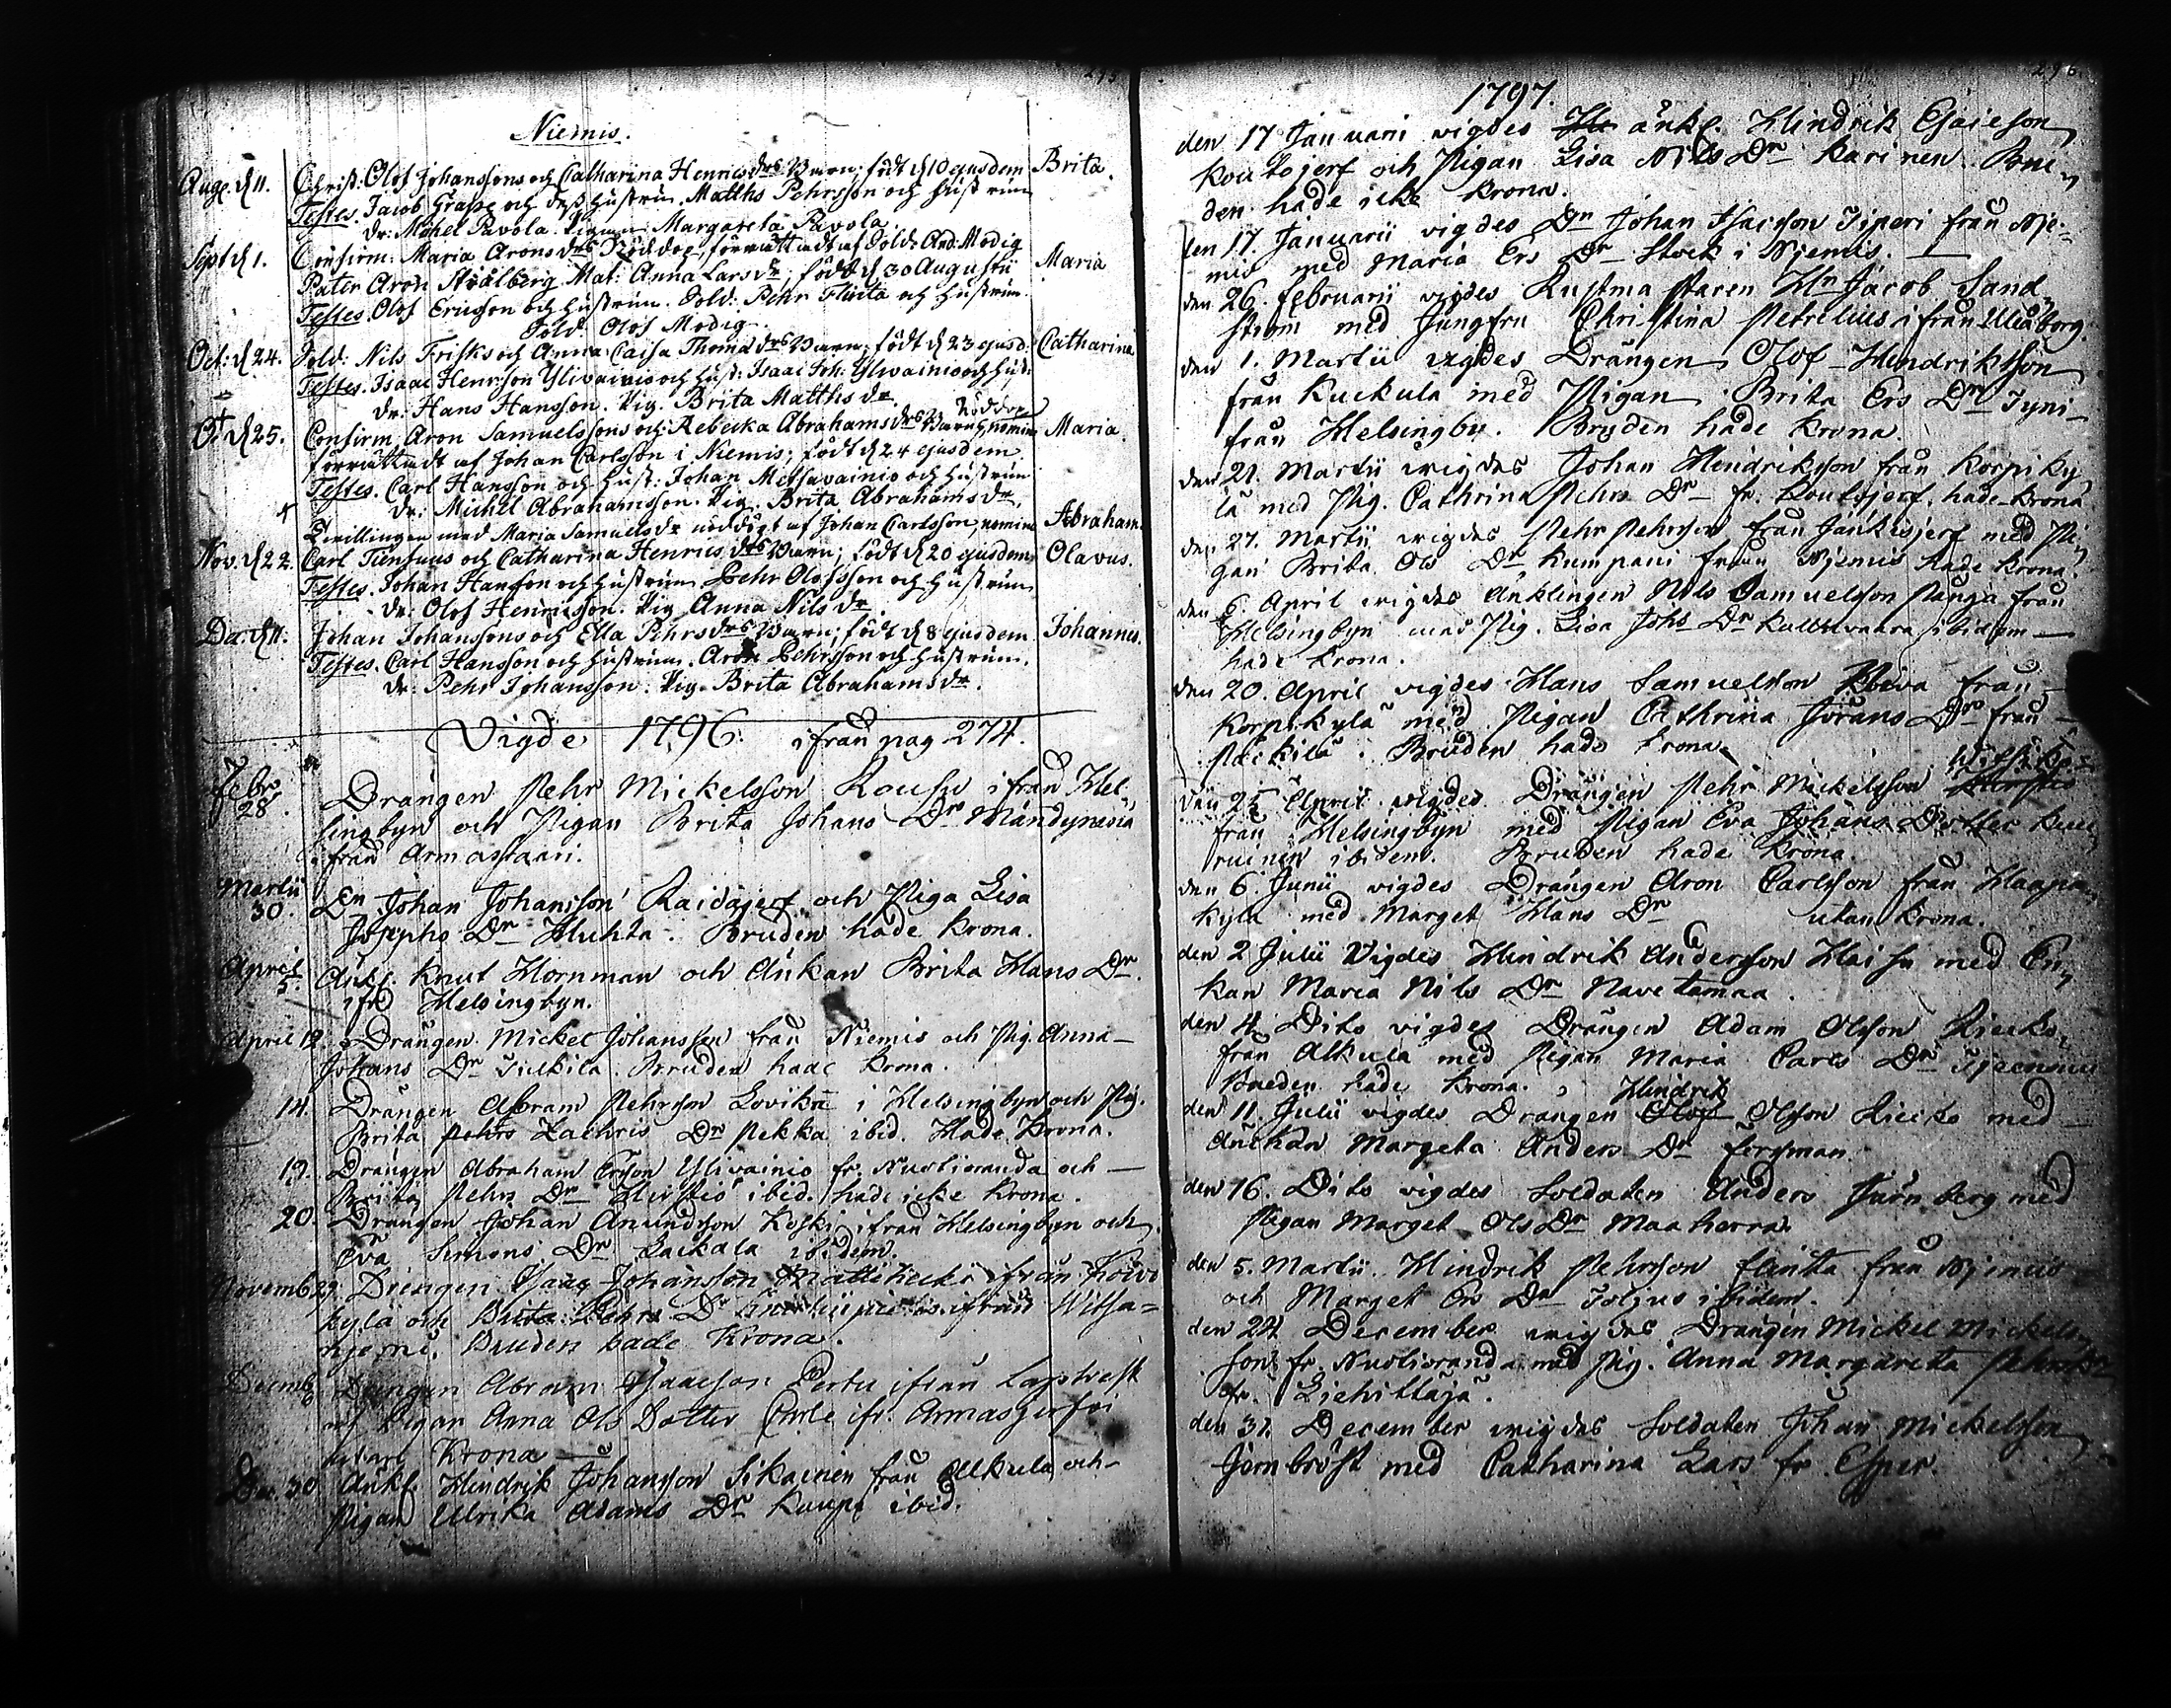 295
Niemis.
Aug. d 11. Christ: Olof Johanssons och Catharina Henricsdrs Barn; födt d 10 ejusdem Brita.
Testes. Jacob Grape och dess hustru. Matths Pehrsson och hustrun
dr: Michel Pavola. Pigan Margareta Pavola.
Sept d 1. Confirm: Maria Aronsdrs Nöddop, förrättadt af Sold: And: Modig Maria
Pater Aron Stålberg Mat: Anna Larsdr; född d 30 Augustii
Testes. Olof Ericsson och hustrun. Sold: Pehr Flinta och hustrun.
Sold Olof Modig.
Oct: d 24. Sold: Nils Frisks och Anna Caisa Thomædrs Barn; födt d 23 ejusd: Catharina
Testes. Isaac Henrsson Ylivainio och hust: Isaac Joh: Ylivainio och hust:
dr. Hans Hansson. Pig. Brita Matths dr.
Oct d 25. Confirm. Aron Samuelssons och Rebecka Abrahamsdrs Barns nöddop nomine Maria.
förrättadt af Johan Carlsson i Niemis; födt d 24 ejusdem.
Testes. Carl Hansson och hust: Johan Metsavainio och hustrun
dr: Michel Abrahamsson. Pig. Brita Abrahamsdr.
Tvillingen med Maria Samuelsdr nöddöpt af Johan Carlsson, nomine Abraham.
Nov. d 22. Carl Tiensuus och Catharina Henrics drs Barn; födt d 20 ejusdem Olavus.
Testes. Johan Hansson och hustrun Pehr Olofsson och hustrun
dr: Olof Henricsson. Pig Anna Nils dr.
Dec: d 11. Johan Johanssons och Ella Pehrsdrs Barn; födt d 8 ejusdem. Johannes.
Testes. Carl Hansson och hustrun. Aron Pehrsson och hustrun.
dr: Pehr Johansson. Pig. Brita Abrahamsdr.
Vigde 1796. ifrån pag 274.
Febr. 28. Drängen Pehr Mickelsson Rousu ifrån Hel
singbyn och Pigan Brita Johans Dr Mändynenä
ifrån Armassaari.
Martii 30. Dn Johan Johansson Raidajerf och Piga Lisa
Josephs Dr Huhta. Bruden hade Krona.
April 5. Änkl. Knut Hornman och Änkan Brita Hans Dr.
ifr Helsingbyn.
April 12. Drängen Mickel Johansson från Niemis och Pig. Anna
Johans Dr Tulkila. Bruden hade Krona.
14. Drängen Abram Pehrsson Lovika i Helsingbyn och Pig.
Brita Pehrs Zachris Dr Pekka ibid. Hade Krona.
19. Drängen Abraham Ersson Ylivainio fr. Nuolioranda och
Brita Pehrs Dr Hirstiö ibid. hade icke Krona.
20. Drängen Johan Anundsson Koski ifrån Helsingbyn och
Eva Simons Dr Lackala ibidem.
Novemb 27. Drengen Isaac Johansson Mattikecki ifrån Koivu
kylä och Brita Pehrs Dr ifrån Witsa=
njemi, Bruden hade Krona.
Decemb 8 Drengen Abram Isaacson Pertu ifrån
och Pigan Anna Ols Dotter ifr. Armasjerfvi
Krona
Dec. 30 Änkl. Hindrik Johansson Sikainen från Alkula och
Pigan Ulrika Adams Dr Kauppi ibid.
296.
1797.
den 17 Januarii vigdes änkl. Hindrik Esaieson
Koutojerf och Pigan Lisa Nils Dr Karinen. Bru
den hade icke Krona.
den 17. Januarii vigdes Dn Johan Isacsson Piperi från Nje-
mis med Maria Ers Dr Stock i Njemis.
den 26. Februarii vigdes Rustmästaren Hr Jacob Sand
ström med Jungfru Christina Petrelius ifrån Uleåborg.
den 1. Martii vigdes Drängen Olof Hendriksson
från Kuckula med Pigan Brita Ers Dr Tyni
från Helsingby. Bryden hade Krona.
den 21. Martii vigdes Johan Hendriksson från Korpiky
lä med Pig. Cathrina Pehrs Dr fr. Koutojerf. hade Krona
den 27. Martii vigdes Pehr Pehrsson från Jänkisjerf med Pi
gan Brita Ols Dr Kumpani från Njemis hade Krona.
den 6. April vigdes Änklingen Nils Samuelsson Panga från
Helsingbyn med Pig. Lisa Johs Dr Kuittavaara ibidem
hade Krona.
den 20. April vigdes Hans Samuelsson från
Korpikylä med Pigan Cathrina Jörans Dr från
Päckilä. Bruden hade Krona.
den 25 April vigdes Drängen Pehr Mickelsson
från Helsingbyn med Pigan Eva Johans Dotter Kuu
ruinen ibidem. Bruden hade Krona.
den 6. Junii vigdes Drängen Aron Carlsson från Haapa
kylä med Marget Hans Dr utan Krona.
den 2 Julii Vigdes Hindrik Andersson Haisu med En
kan Maria Nils Dr Navetamaa.
den 4 Dito vigdes Drängen Adam Olsson Riecko
från Alkula med Pigan Maria Carls Dr Tjeensuu
Bruden hade Krona.
den 11. Julii vigdes Drängen Olof Hindrik Olsson Riecko med
Änckan Margeta Anders Dr Fergman
den 16. Dito vigdes Soldaten Anders Stjärnberg med
Pigan Marget Ols Dr Maaherra.
den 5. Martii Hindrik Pehrsson Flintta från Njemis
och Marget Ers Dr Toljus ibidem.
den 24 December vigdes Drängen Mickel Mickels
son fr. Nuolioranda med Pig. Anna Margareta Pehrs Dr
fr. Liehittäjä.
den 31 December vigdes Soldaten Johan Mickelsson
Jernbröst med Catharina Lars fr. Esper.